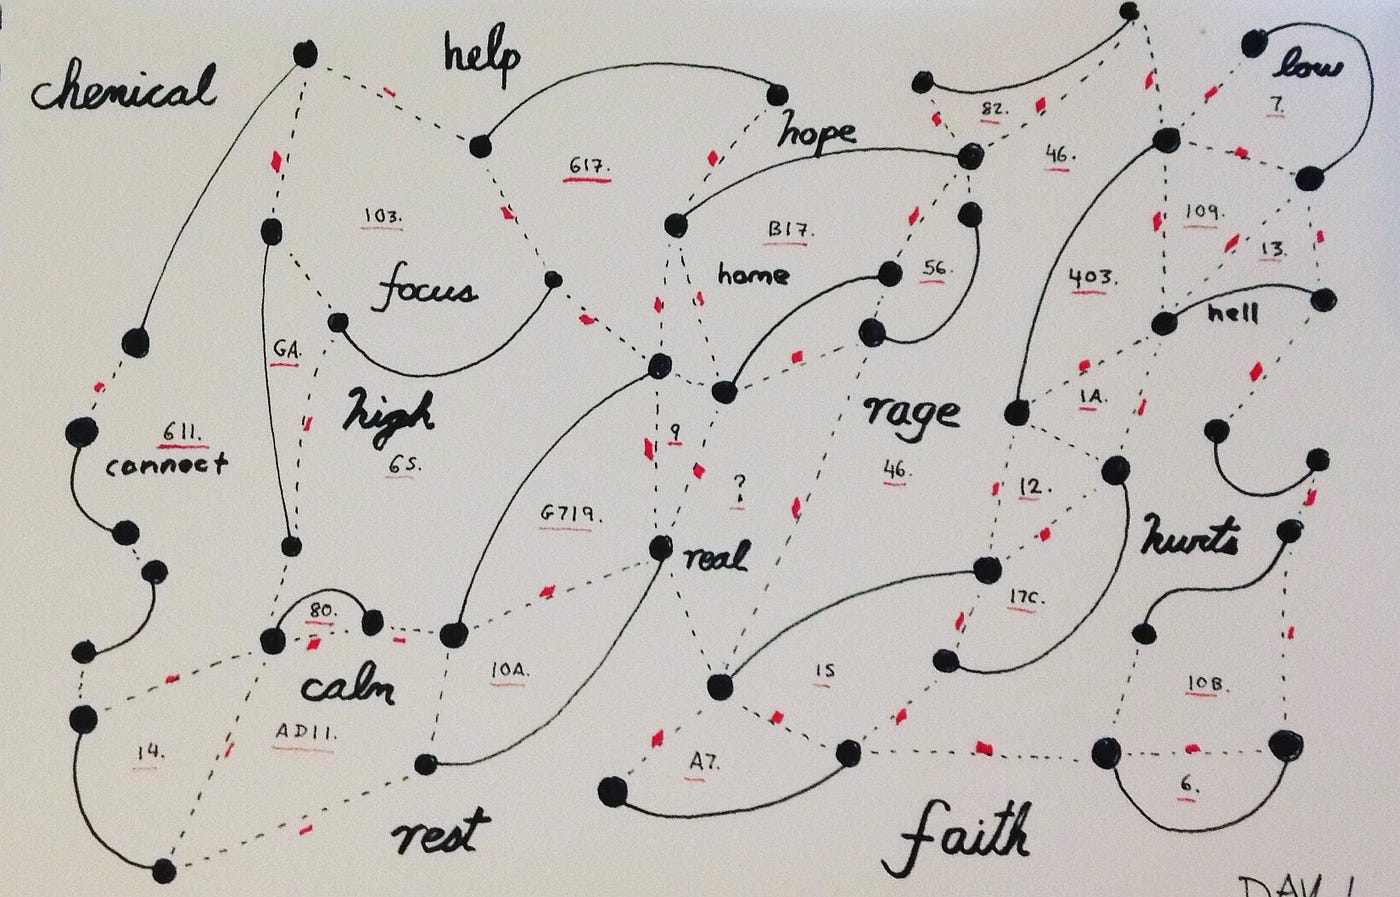 help
low
chemical
82.
7.
hope
617.
46.
103.
109.
B17.
13.
home
56.
403.
focus
hell
GA.
1A.
high
rage
611.
9
connect
65.
46.
?
12.
G719.
hurts
real
80.
17C.
10A.
15
calm
10B.
AD11.
14.
A7.
6.
rest
faith
DAY 1